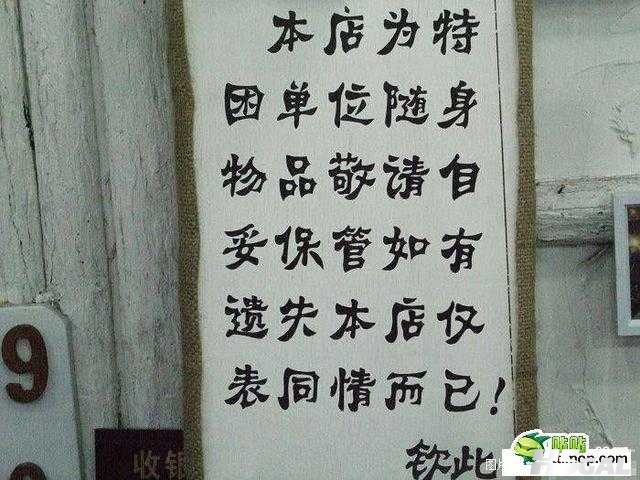 本店为特
困单位随身
物品敬请自
妥保管如有
遗失本店仅
表同情而已!
钦此
9
收银
咔咔